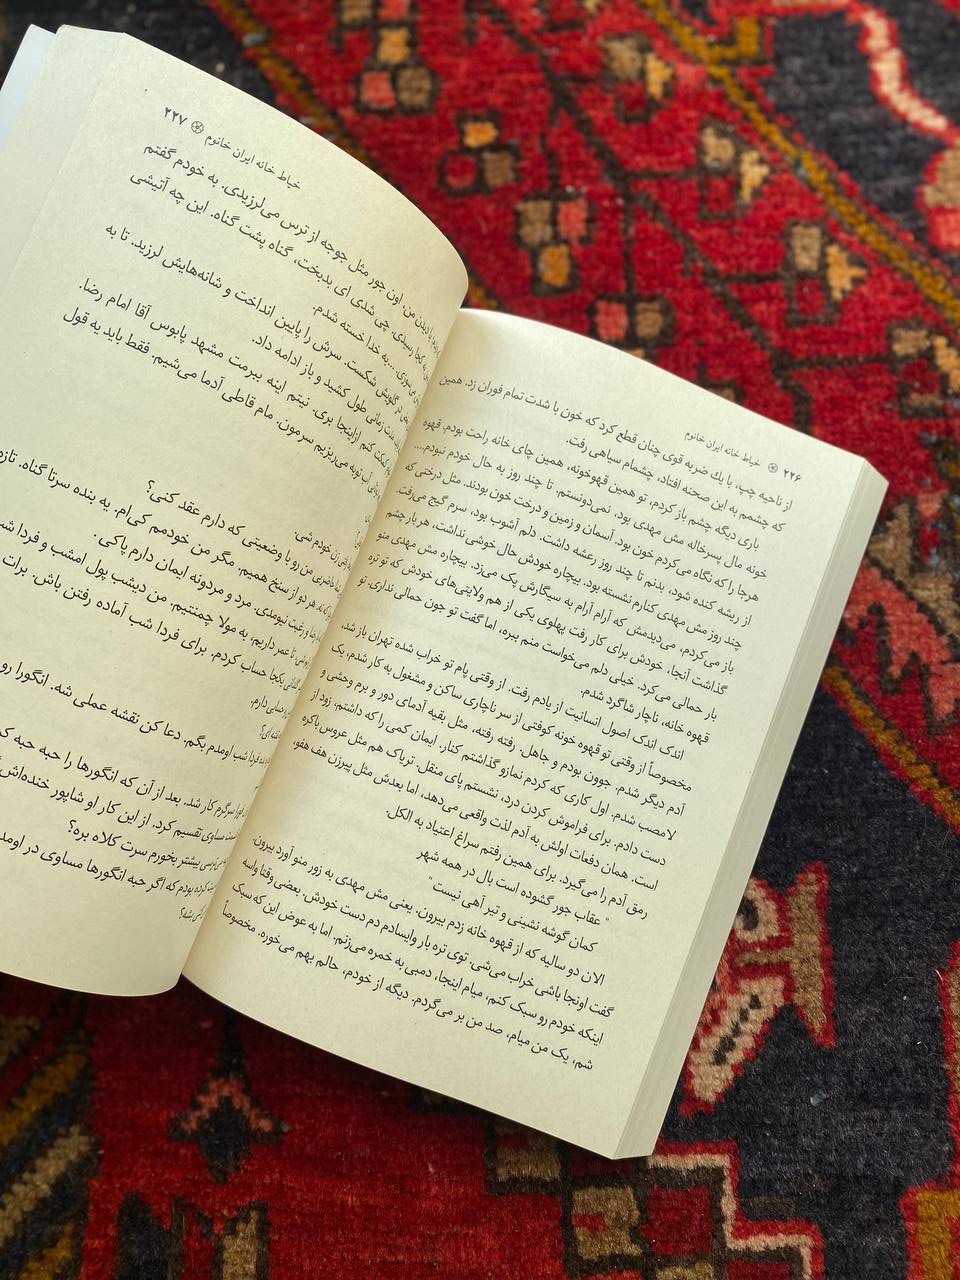 ۲۲۶ خیاط خانه ایران خانوم
از ناحیه چپ، با یك ضربه قوی چنان قطع کرد که خون با شدت تمام فوران زد. همین
که چشمم به این صحنه افتاد، چشمام سیاهی رفت.
باری دیگه چشم باز کردم، تو همین قهوخونه، همین جای خانه راحت بودم. قهوه
خونه مال پسرخاله مش مهدی بود، نمی‌دونستم. تا چند روز به حال خودم نبودم...
هرجا را که نگاه می‌کردم خون بود. آسمان و زمین و درخت خون بودند. مثل درختی که
از ریشه کنده شود، بدنم تا چند روز رعشه داشت. دلم آشوب بود، سرم گیج می‌رفت.
چند روز مش مهدی کنارم نشسته بود. بیچاره خودش حال خوشی نداشت، هر بار چشم
باز می‌کردم، می‌دیدمش که آرام آرام به سیگارش پک می‌زد. بیچاره مش مهدی منو
گذاشت آنجا، خودش برای کار رفت پهلوی یکی از هم ولایتی‌های خودش که تو تره
بار حمالی می‌کرد. خیلی دلم می‌خواست منم ببره، اما گفت تو جون حمالی نداری. تو
قهوه خانه، ناچار شاگرد شدم.
اندک اندک اصول انسانیت از یادم رفت. از وقتی پام تو خراب شده تهران باز شد،
مخصوصاً از وقتی تو قهوه خونه کوفتی از سر ناچاری ساکن و مشغول به کار شدم، یک
آدم دیگر شدم. جوون بودم و جاهل. رفته رفته، مثل بقیه آدمای دور و برم وحشی و
لامصب شدم. اول کاری که کردم نمازو گذاشتم کنار. ایمان کمی را که داشتم، زود از
دست دادم. برای فراموش کردن درد، نشستم پای منقل. تریاک هم مثل عروس باکره
است. همان دفعات اولش به آدم لذت واقعی می‌دهد، اما بعدش مثل پیرزن هف هفو،
رمق آدم را می‌گیرد. برای همین رفتم سراغ اعتیاد به الکل.
" عقاب جور گشوده است بال در همه شهر
کمان گوشه نشینی و تیر آهی نیست"
الان دو سالیه که از قهوه خانه زدم بیرون. یعنی مش مهدی به زور منو آورد بیرون.
گفت اونجا باشی خراب می‌شی. توی تره بار وایسادم دم دست خودش. بعضی وقتا واسه
اینکه خودم رو سبک کنم، میام اینجا، دمبی به خمره می‌زنم. اما به عوض این که سبک
شم، یک من میام، صد من بر می‌گردم. دیگه از خودم، حالم بهم می‌خوره. مخصوصاً
خیاط خانه ایران خانوم ۲۲۷
با دیدن من، اون جور مثل جوجه از ترس می‌لرزیدی. به خودم گفتم
به کجا رسیدی. چی شدی ای بدبخت، گناه پشت گناه. این چه آتیشی
به خدا خسته شدم.
در گلویش شکست. سرش را پایین انداخت و شانه‌هایش لرزید. تا به
مدت زمانی طول کشید و باز ادامه داد.
کمکت کنم ازاینجا بری. نیتم اینه ببرمت مشهد پابوس آقا امام رضا.
آب توبه می‌ریزیم سرمون. مام قاطی آدما می‌شیم. فقط باید یه قول
خودم شی.
رو با وضعیتی که دارم عقد کنی؟
هر دو از سنخ همیم. مگر من خودمم کی‌ام. یه بنده سرتا گناه. تازه
و رغبت نیومدی. مرد و مردونه ایمان دارم پاکی.
تا عمر داریم، به مولا چمنتیم. من دیشب پول امشب و فردا
یکجا حساب کردم. برای فردا شب آماده رفتن باش. برات
دارم.
فردا شب اومدم بگم. دعا کن نقشه عملی شه. انگورا رو
سرگرم کار شد. بعد از آن که انگورها را حبه حبه
مساوی تقسیم کرد. از این کار او شاپور خنده‌اش
بیشتر بخورم سرت کلاه بره؟
بودم که اگر حبه انگورها مساوی در